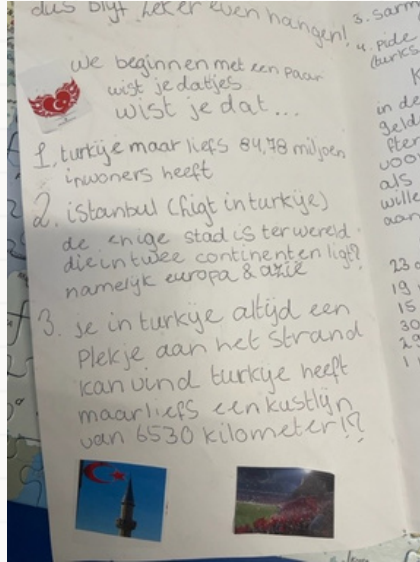 dus blijf zeker even hangen!
we beginnen met een paar
wist je datjes
wist je dat...
1. turkije maar liefs 84,78 miljoen
inwoners heeft
2. istanbul (ligt in turkije)
de enige stad is ter wereld
die in twee continenten ligt?
namelijk europa & azië
3. Je in turkije altijd een
plekje aan het strand
kan vind turkije heeft
maar liefs een kustlijn
van 6530 kilometer!?
3. Sarm
4. Pide
(turks
in de
geld
voo
als
wille
aan
23
19
15
30
29
1